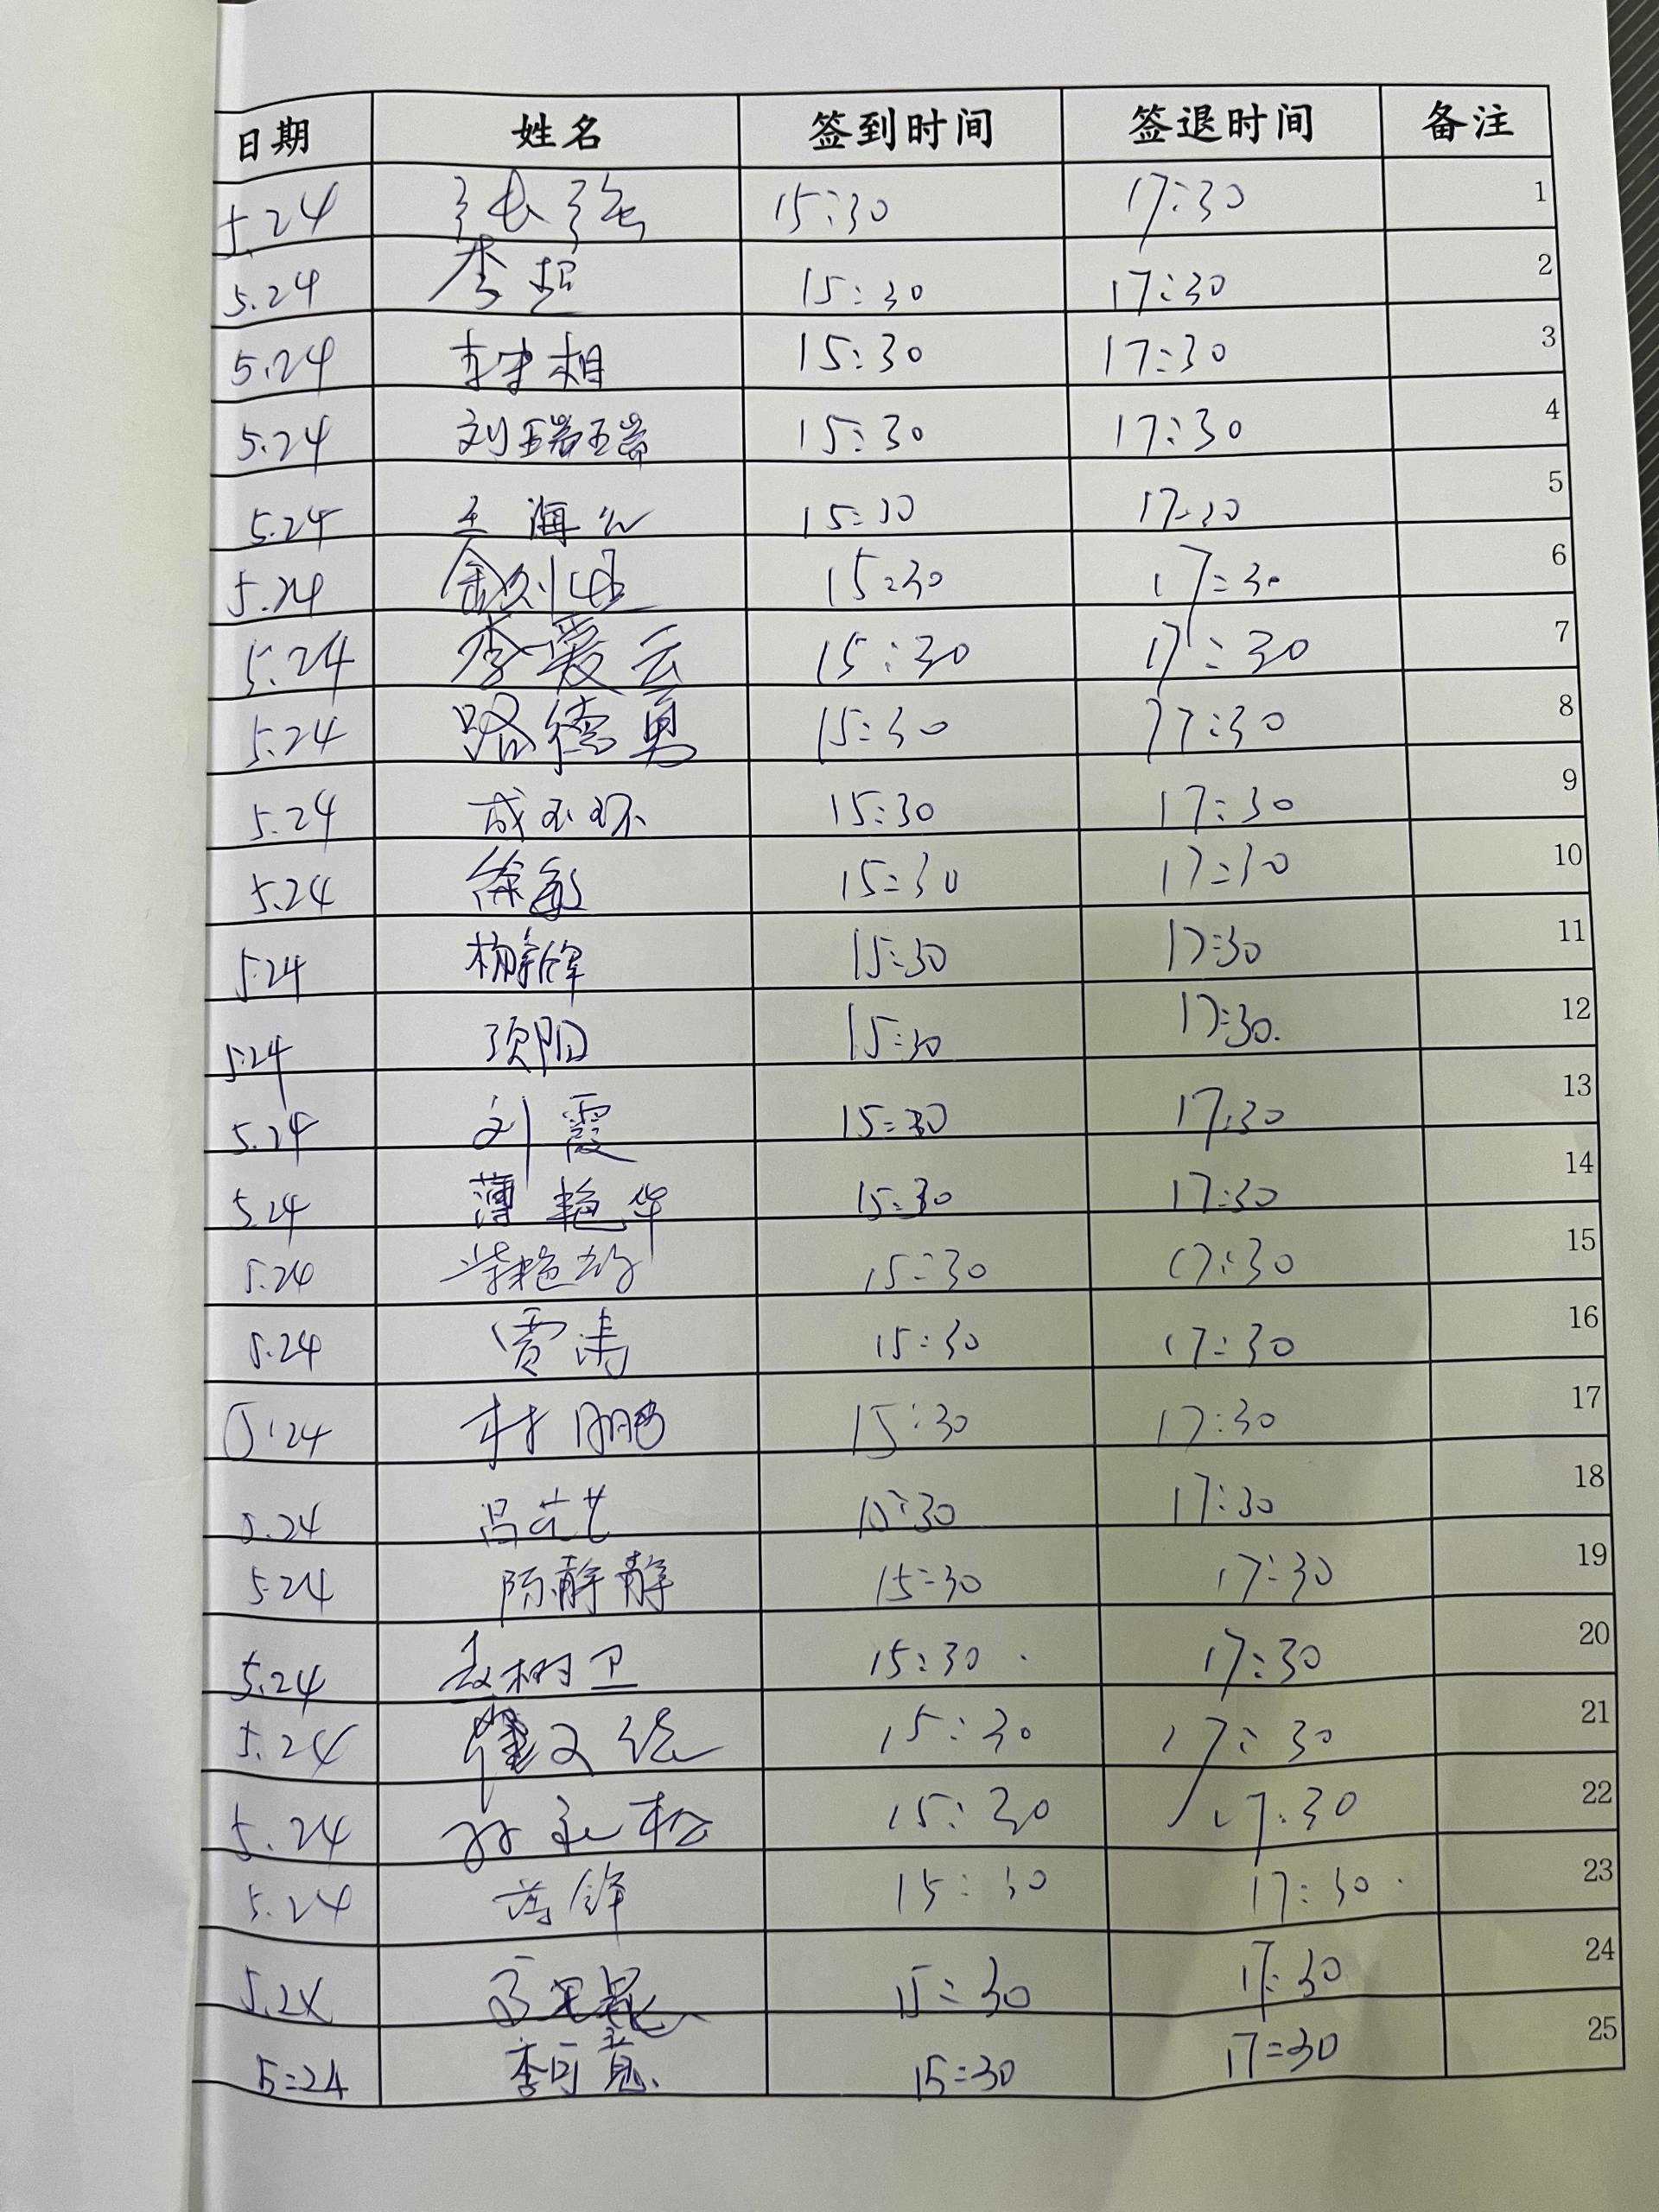 日期 姓名 签到时间 签退时间 备注
5.24 张强 15:30 17:30 1
5.24 李超 15:30 17:30 2
5.24 15:30 17:30 3
5.24 刘瑞瑞 15:30 17:30 4
5.24 王海 15:30 17:30 5
5.24 15:30 17:30 6
5.24 李爱云 15:30 17:30 7
5.24 路德勇 15:30 17:30 8
5.24 成玉环 15:30 17:30 9
5.24 徐敏 15:30 17:30 10
5.24 15:30 17:30 11
5.24 项阳 15:30 17:30. 12
5.24 刘霞 15:30 17:30 13
5.24 薄艳华 15:30 17:30 14
5.24 15:30 17:30 15
5.24 贾涛 15:30 17:30 16
5.24 鹏 15:30 17:30 17
5.24 吕艺 15:30 17:30 18
5.24 陈静静 15:30 17:30 19
5.24 孟树卫 15:30 17:30 20
5.24 15:30 17:30 21
5.24 15:30 17:30 22
5.24 锋 15:30 17:30 23
5.24 15:30 17:30 24
5:24 李可意 15:30 17:30 25